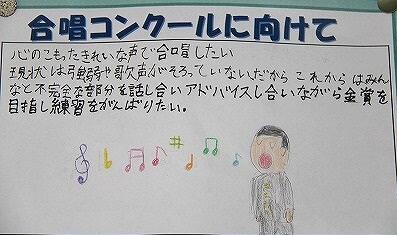 合唱コンクールに向けて
心のこもったきれいな声で合唱したい
現状は強弱や歌声がそろっていないだから これからはみん
なと不完全な部分を話し合いアドバイスし合いながら金賞を
目指し練習をがんばりたい。